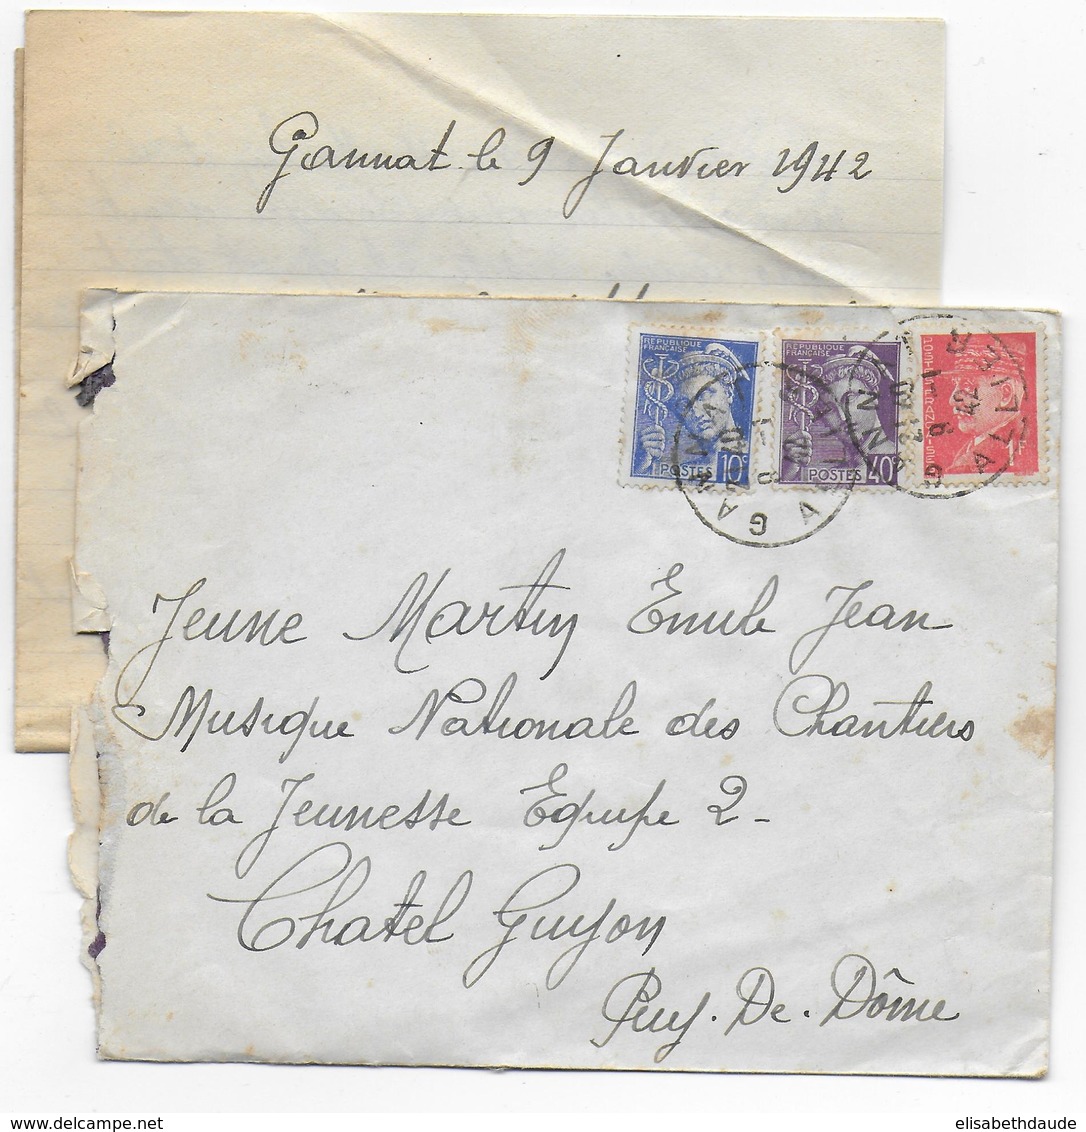 Gannat le 9 Janvier 1942
REPUBLIQUE FRANÇAISE
POSTES 10c
REPUBLIQUE FRANÇAISE
POSTES 40c
POSTES FRANÇAISES
1F
GANNAT
ALLIER
9 -1 42
GANNAT
21 40
9 -1 42
ALLIER
Jeune Martin Emile Jean
Musique Nationale des Chantiers
de la Jeunesse Equipe 2-
Chatel Guyon
Puy. De. Dôme
elisabethdaude